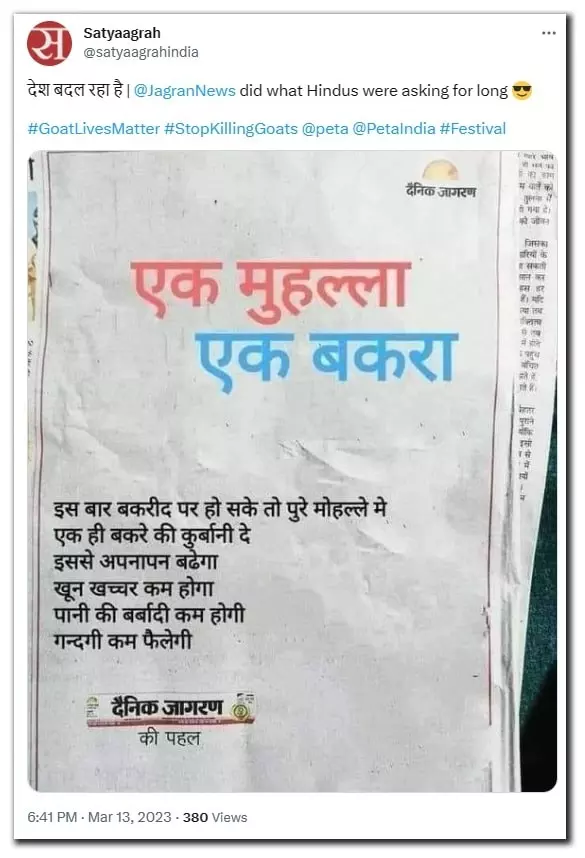 स
Satyaagrah
@satyaagrahindia
देश बदल रहा है | @JagranNews did what Hindus were asking for long 😎
#GoatLivesMatter #StopKillingGoats @peta @PetaIndia #Festival
दैनिक जागरण
एक मुहल्ला
एक बकरा
इस बार बकरीद पर हो सके तो पुरे मोहल्ले मे
एक ही बकरे की कुर्बानी दे
इससे अपनापन बढेगा
खून खच्चर कम होगा
पानी की बर्बादी कम होगी
गन्दगी कम फैलेगी
दैनिक जागरण
की पहल
6:41 PM · Mar 13, 2023 · 380 Views